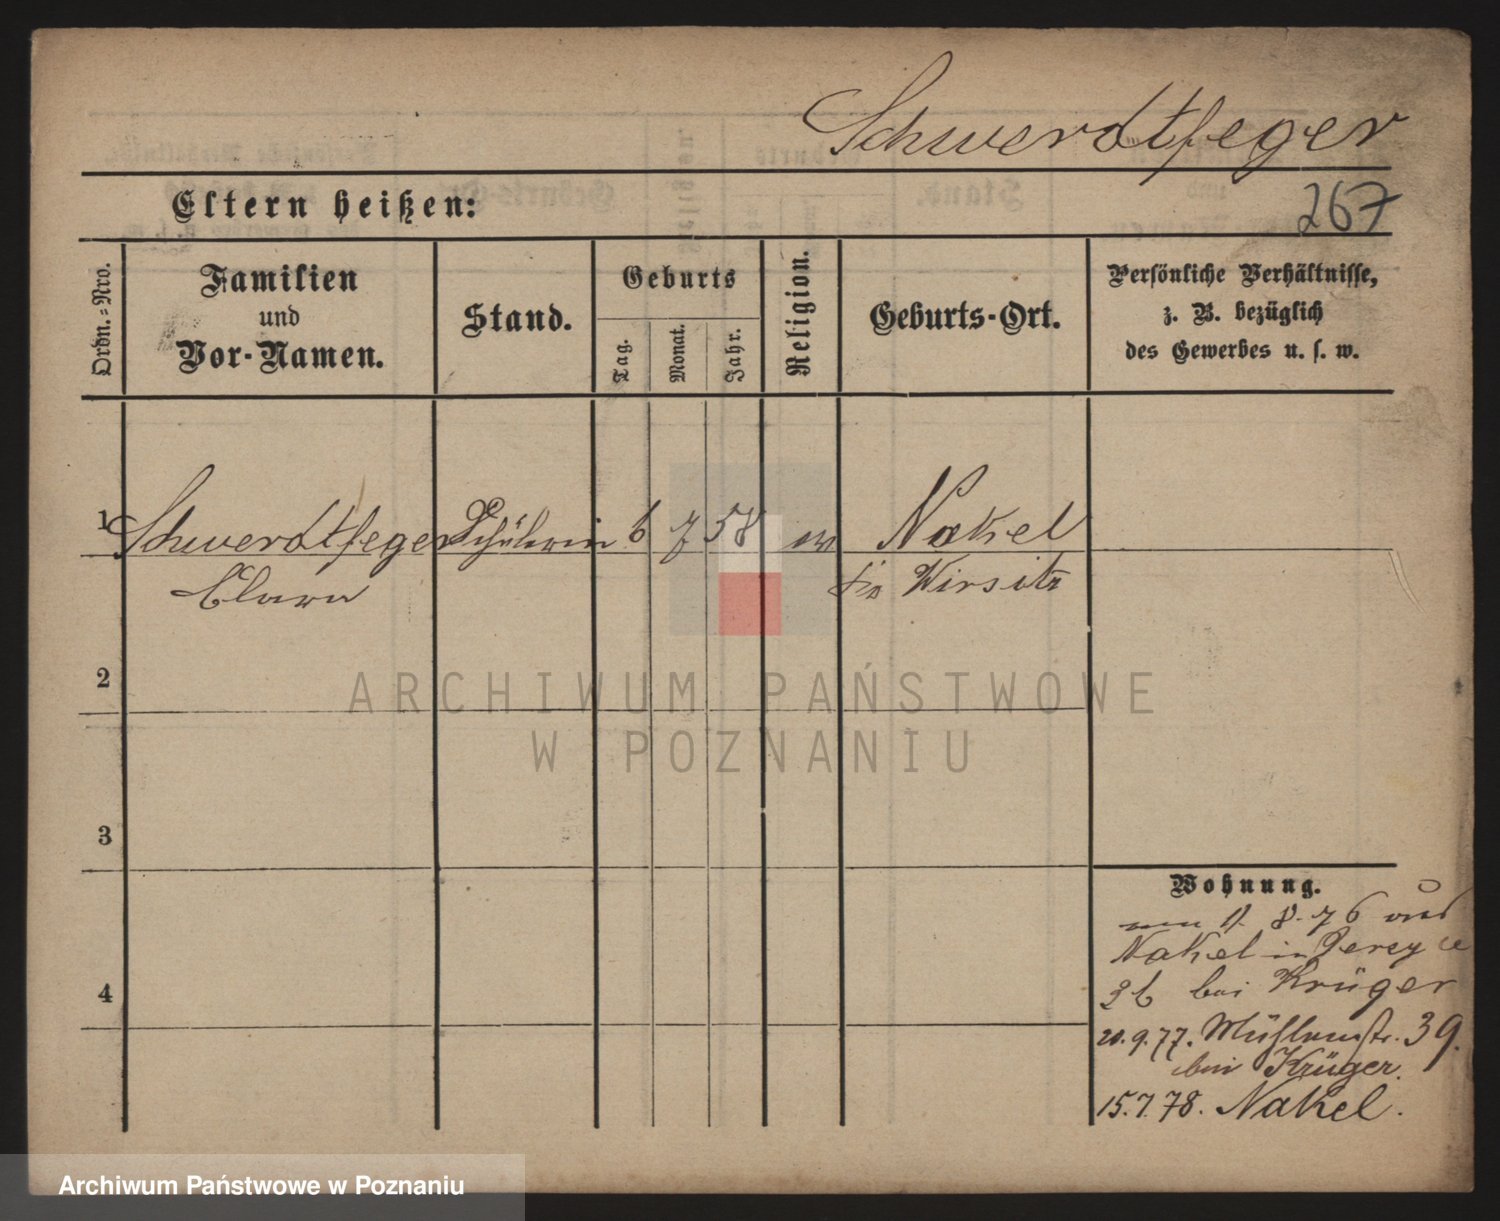 Schwerdtfeger
Eltern heißen:
267
Ordn.-Nro.
Familien
und
Vor-Namen.
Stand.
Geburts
Tag.
Monat.
Jahr.
Religion.
Geburts-Ort.
Persönliche Verhältnisse,
z. B. bezüglich
des Gewerbes u. s. w.
1 Schwerdtfeger Schülerin 6 7 58 ev Nakel
Clara Wirsitz
2
ARCHIWUM PAŃSTWOWE
W POZNANIU
3
4
Wohnung.
8. 76
Nakel in
bei Krüger
20.9.77. Mühlenstr. 39.
bei Krüger.
15.7.78. Nakel.
Archiwum Państwowe w Poznaniu